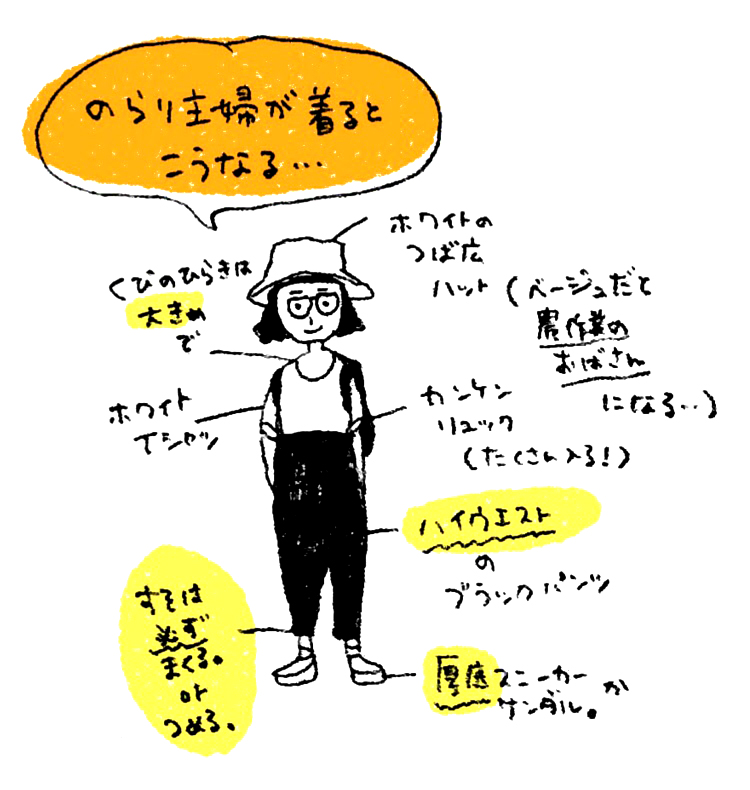 のらり主婦が着ると
こうなる…
ホワイトの
つば広
ハット
(ベージュだと
農作業の
おばさん
になる…)
くびのひらきは
大きめ
で
ホワイト
Tシャツ
カンケン
リュック
(たくさん入る!)
ハイウエスト
の
ブラックパンツ
すそは
必ず
まくる。
or
つめる。
厚底スニーカー
か
サンダル。